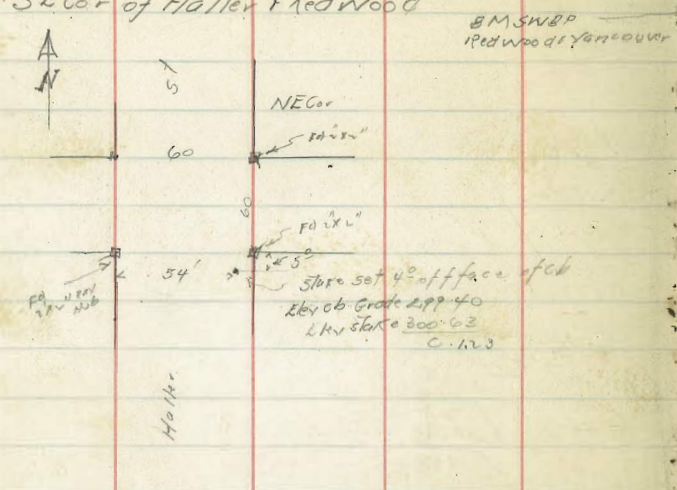 SE Cor of Haller & Redwood
BM SWBP
Redwood & Vancouver
N
St
NE Cor
Fd 2"x2"
60
60
Fd 2"x2"
5°
54'
Stake set 4° off face of cb
Fd
2"x2"
Hub
Elev cb Grade 299.40
Elev stake 300.63
C-1.23
Haller